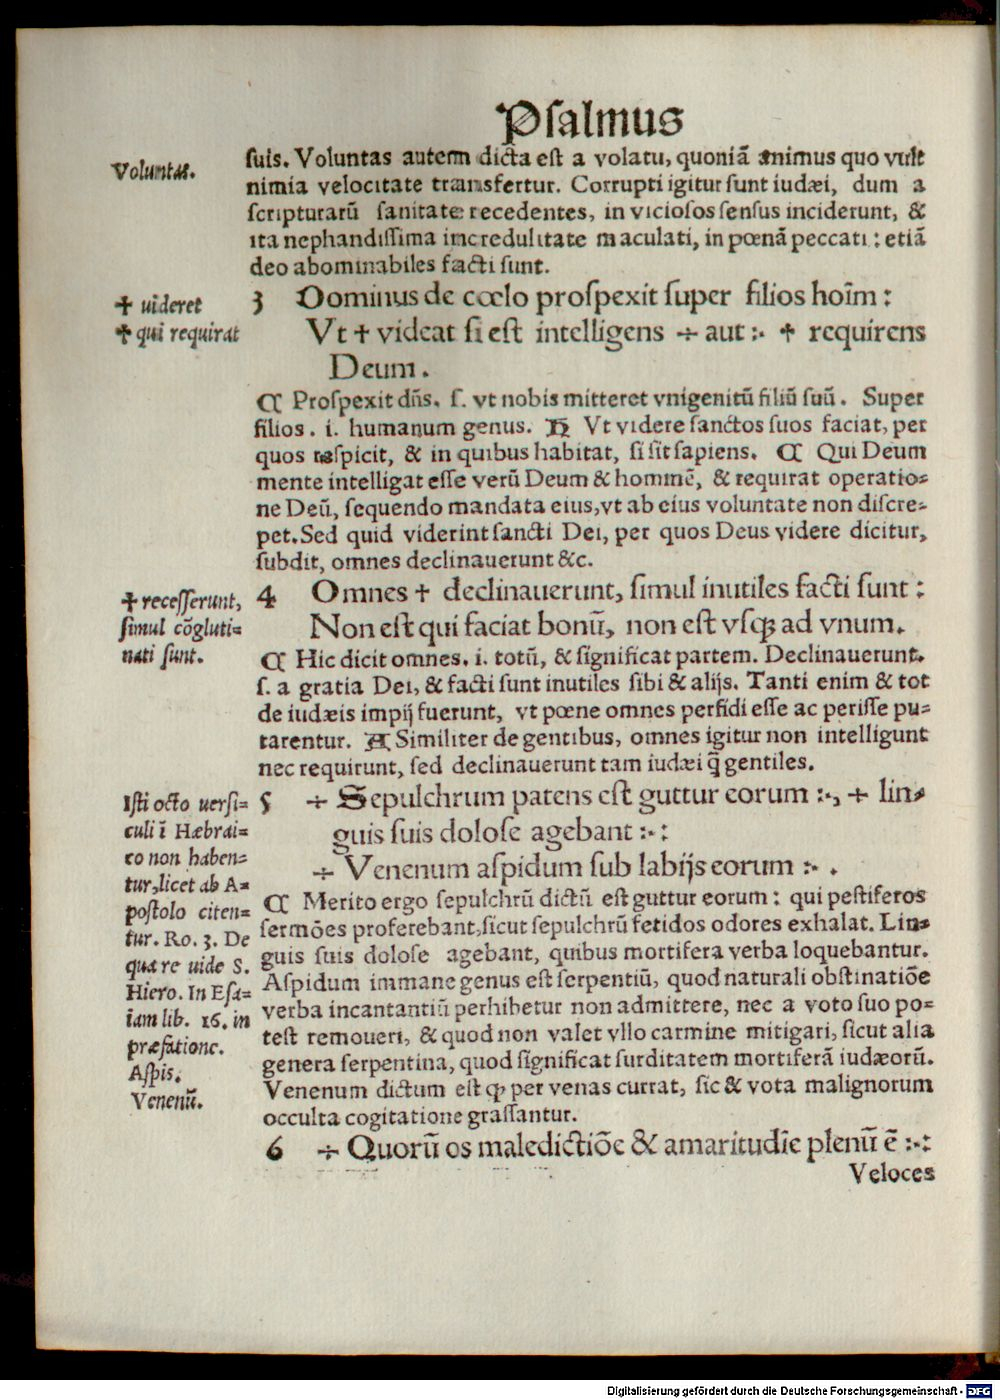 Pſalmus
Voluntas.
ſuis. Voluntas autem dicta eſt a volatu, quoniā animus quo vult
nimia velocitate transfertur. Corrupti igitur ſunt iudæi, dum a
ſcripturarū ſanitate recedentes, in vicioſos ſenſus inciderunt, &
ita nephandiſſima incredulitate maculati, in pœnā peccati: etiā
deo abominabiles facti ſunt.
✝ uideret
✝ qui requirat
3 Dominus de cœlo proſpexit ſuper filios hoīm:
Vt ✝ videat ſi eſt intelligens ÷ aut :· ✝ requirens
Deum.
¶ Proſpexit dn̄s. ſ. vt nobis mitteret vnigenitū filiū ſuū. Super
filios. i. humanum genus. H Vt videre ſanctos ſuos faciat, per
quos reſpicit, & in quibus habitat, ſi ſit ſapiens. ¶ Qui Deum
mente intelligat eſſe verū Deum & hominē, & requirat operatio⸗
ne Deū, ſequendo mandata eius, vt ab eius voluntate non diſcre⸗
pet. Sed quid viderint ſancti Dei, per quos Deus videre dicitur,
ſubdit, omnes declinauerunt &c.
✝ receſſerunt,
ſimul cōgluti⸗
nati ſunt.
4 Omnes ✝ declinauerunt, ſimul inutiles facti ſunt:
Non eſt qui faciat bonū, non eſt vſq; ad vnum.
¶ Hic dicit omnes. i. totū, & ſignificat partem. Declinauerunt.
ſ. a gratia Dei, & facti ſunt inutiles ſibi & alijs. Tanti enim & tot
de iudæis impij fuerunt, vt pœne omnes perfidi eſſe ac periſſe pu⸗
tarentur. A Similiter de gentibus, omnes igitur non intelligunt
nec requirunt, ſed declinauerunt tam iudæi q̄ gentiles.
Iſti octo uerſi⸗
culi ī Hæbrai⸗
co non haben⸗
tur, licet ab A⸗
poſtolo citen⸗
tur. Ro. 3. De
qua re uide S.
Hiero. In Eſa⸗
iam lib. 16. in
præfatione.
Aſpis.
Venenū.
5 ÷ Sepulchrum patens eſt guttur eorum :·, ÷ lin⸗
guis ſuis doloſe agebant :·:
÷ Venenum aſpidum ſub labijs eorum :· .
¶ Merito ergo ſepulchrū dictū eſt guttur eorum: qui peſtiferos
ſermōes proferebant, ſicut ſepulchrū fetidos odores exhalat. Lin⸗
guis ſuis doloſe agebant, quibus mortifera verba loquebantur.
Aſpidum immane genus eſt ſerpentiū, quod naturali obſtinatiōe
verba incantantiū perhibetur non admittere, nec a voto ſuo po⸗
teſt remoueri, & quod non valet vllo carmine mitigari, ſicut alia
genera ſerpentina, quod ſignificat ſurditatem mortiferā iudæorū.
Venenum dictum eſt qꝫ per venas currat, ſic & vota malignorum
occulta cogitatione graſſantur.
6 ÷ Quorū os maledictiōe & amaritudīe plenū ē :·:
Veloces
Digitalisierung gefördert durch die Deutsche Forschungsgemeinschaft - DFG